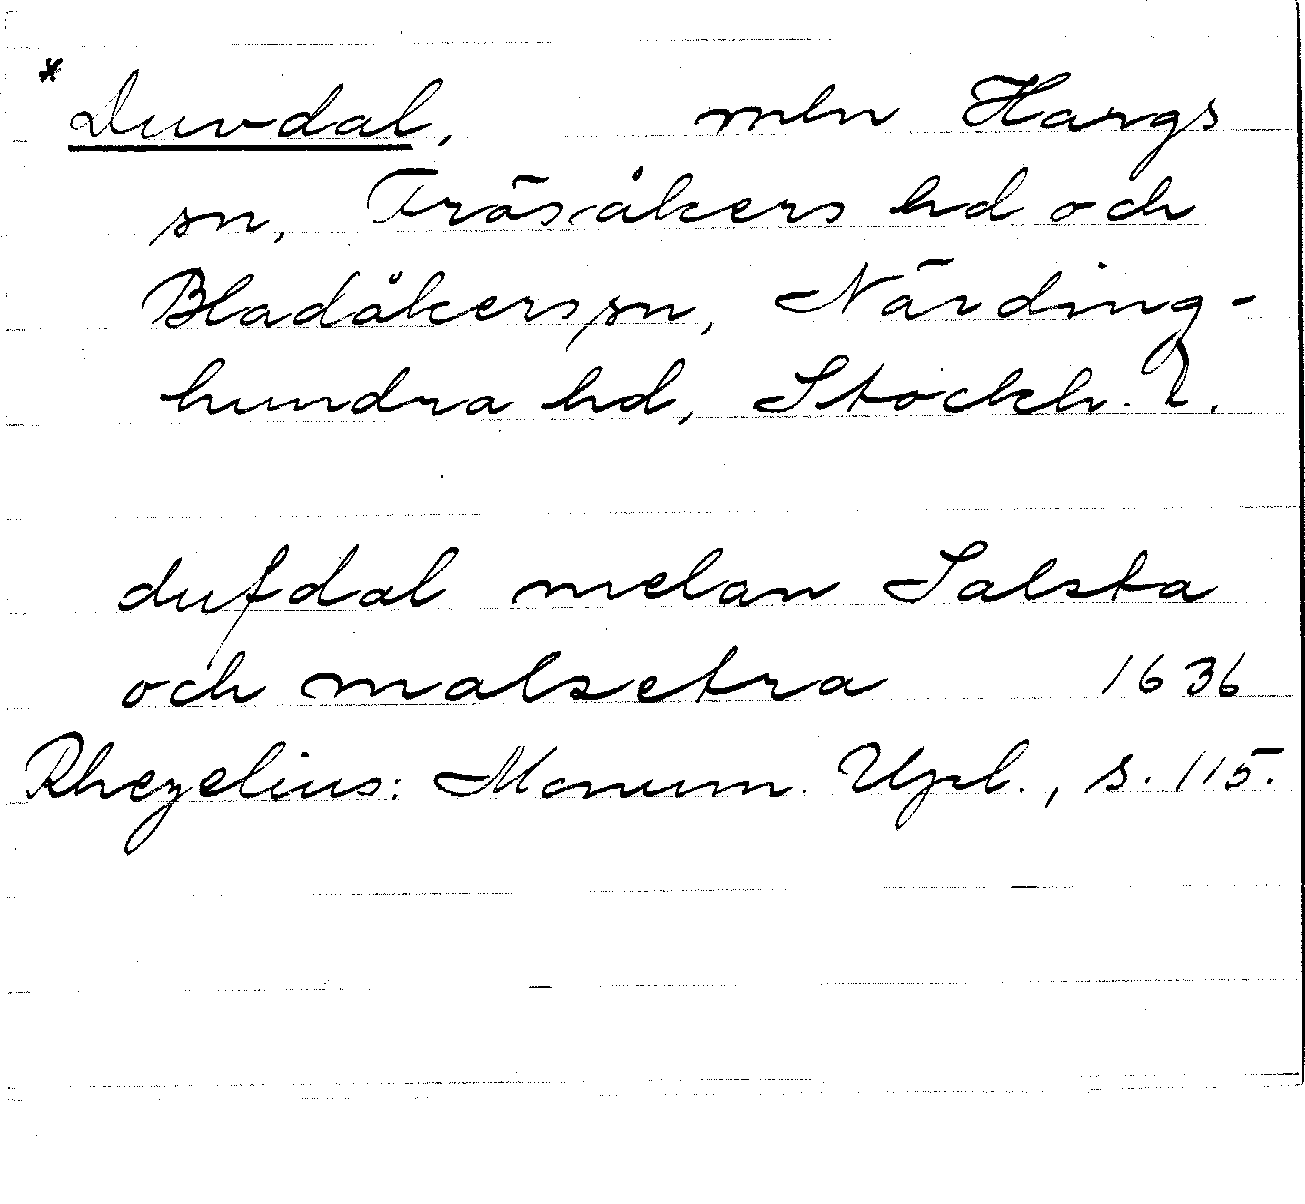 * Duvdal, mln Hargs
sn, Frösåkers hd och
Bladåkers sn, Närding-
hundra hd, Stockh. l.
dufdal melan Salsta
och malsetra 1636
Rhezelius: Monum. Upl., s. 115.